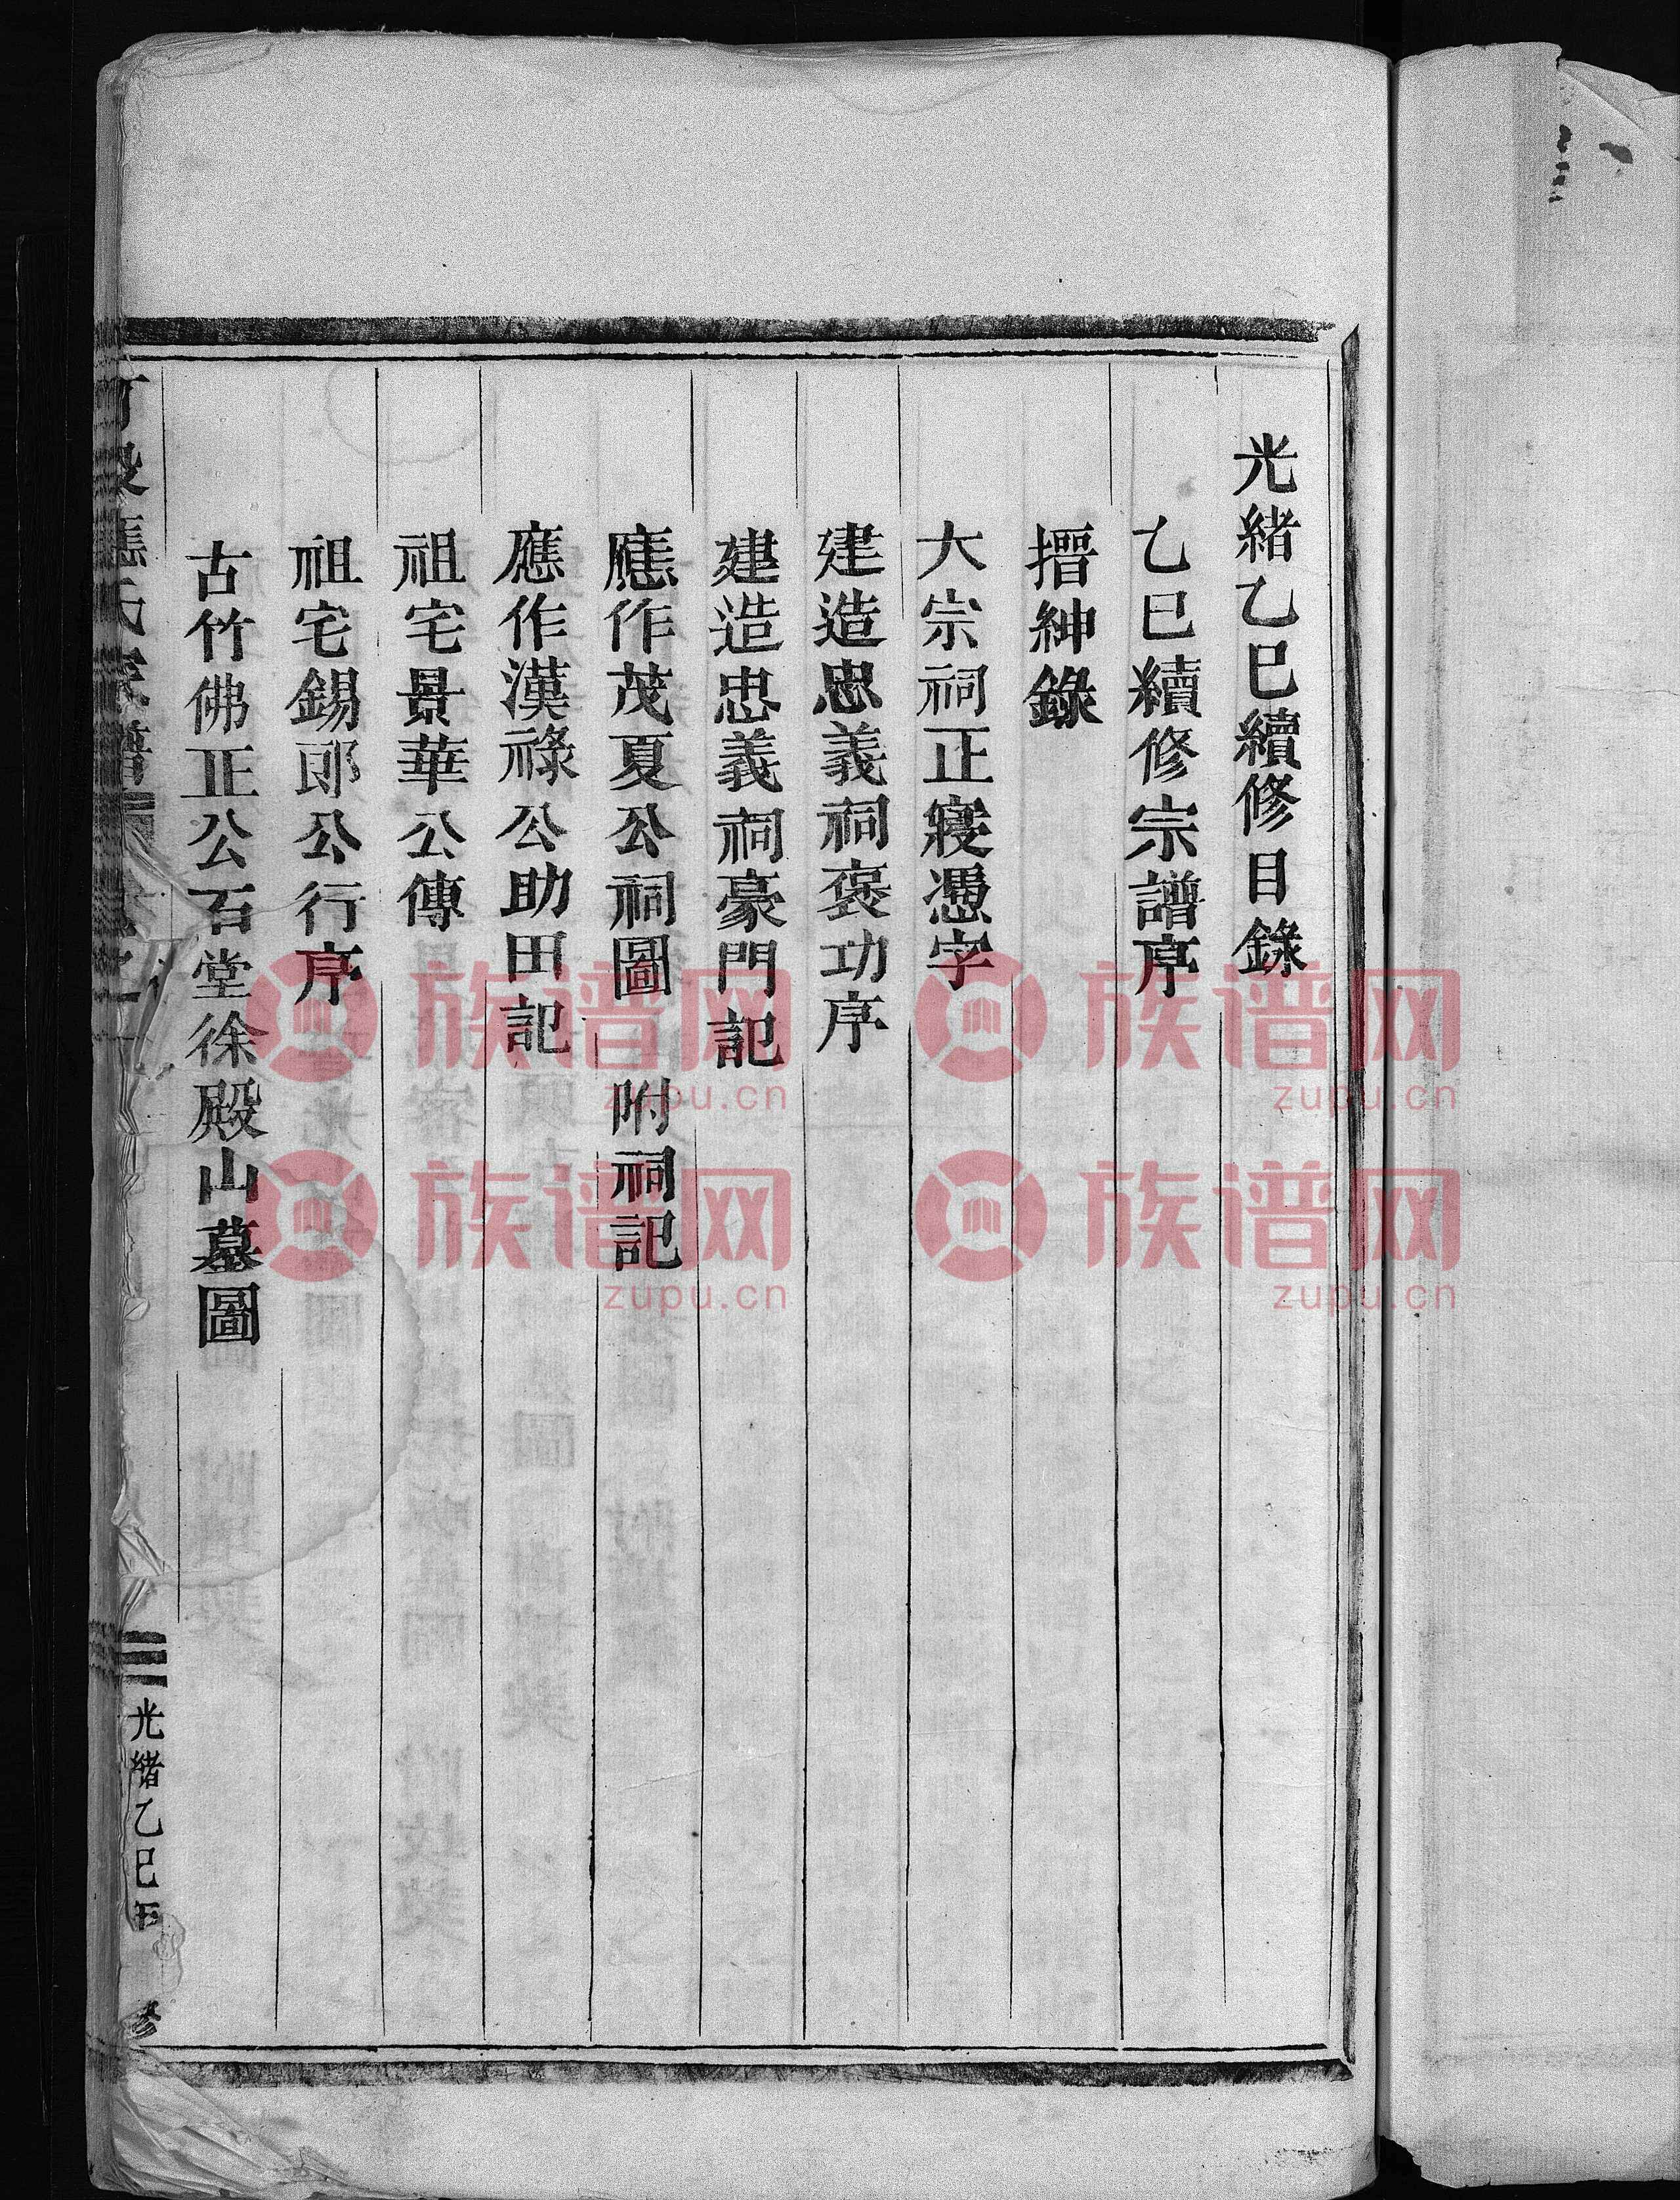 光緒乙巳續修目錄
乙巳續修宗譜序
搢紳錄
大宗祠正寢憑字
建造忠義祠褒功序
建造忠義祠豪門記
應作茂夏公祠圖 附祠記
應作漢祿公助田記
祖宅景華公傳
祖宅錫郎公行序
古竹佛正公石堂徐殿山墓圖
應氏家譜
光緒乙巳
修
族谱网
zupu.cn
族谱网
zupu.cn
族谱网
zupu.cn
族谱网
zupu.cn